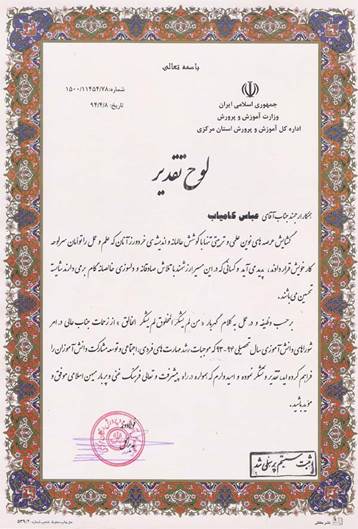 باسمه تعالی
شماره: ۱۵۰۰/۱۱۴۵۴/۷۸
تاریخ: ۹۴/۴/۸
جمهوری اسلامی ایران
وزارت آموزش و پرورش
اداره کل آموزش و پرورش استان مرکزی
لوح تقدیر
همکار ارجمند جناب آقای عباس کامیاب
گشایش عرصه های نوین علمی و تربیتی تنها با کوشش عالمانه و اندیشه ی خردورز آنان که علم و عمل را توامان سرلوحه
کار خویش قرار داده اند، پدید می آید و کسانی که در این مسیر ارزشمند با تلاش صادقانه و دلسوزی خالصانه گام بر می دارند شایسته
تحسین می باشند.
بر حسب وظیفه و در عمل به کلام گهربار « من لم یشکر المخلوق لم یشکر الخالق » از زحمات جناب عالی در امر
شوراهای دانش آموزی سال تحصیلی ۹۴-۹۳ که موجبات رشد مهارت های فردی، اجتماعی و توسعه مشارکت دانش آموزان را
فراهم کرده اید تقدیر و تشکر نموده و امید دارم که همواره در راه پیشرفت و تعالی فرهنگ غنی و پربار میهن اسلامی موفق و
مؤید باشید.
ثبت سیستم پرسنلی شد